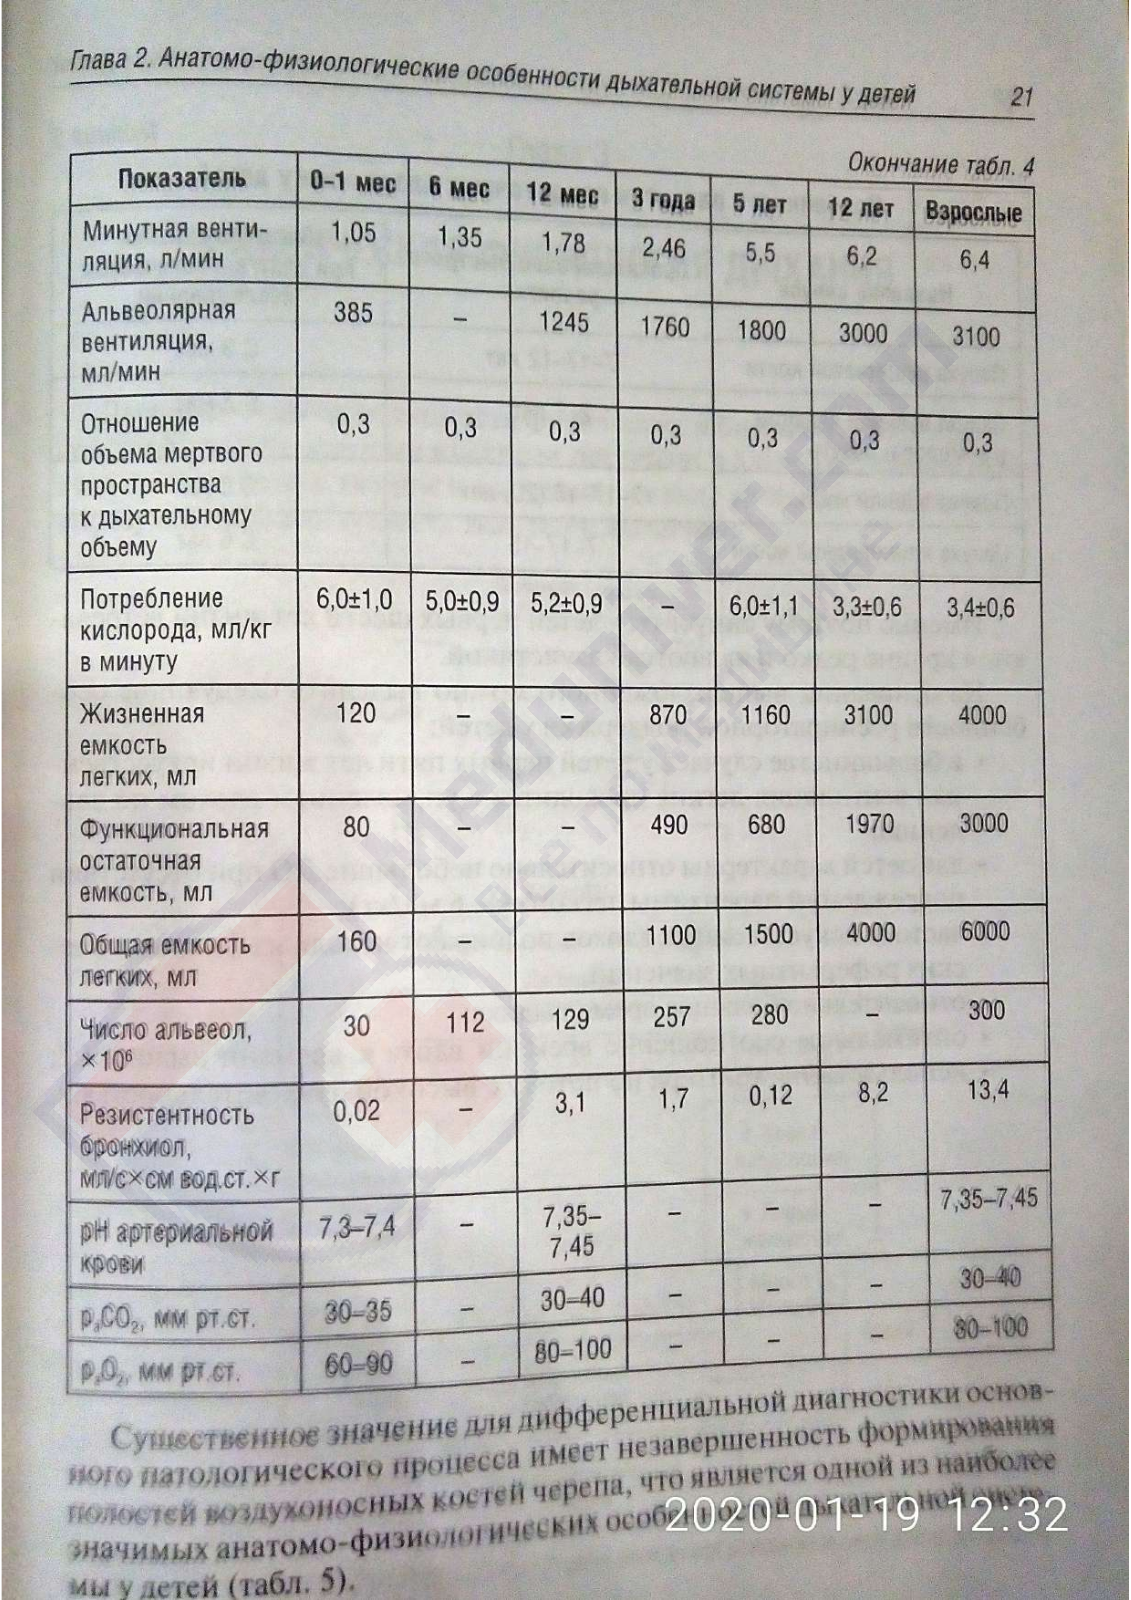 Глава 2. Анатомо-физиологические особенности дыхательной системы у детей 21
Окончание табл. 4
Показатель 0–1 мес 6 мес 12 мес 3 года 5 лет 12 лет Взрослые
Минутная венти-
ляция, л/мин 1,05 1,35 1,78 2,46 5,5 6,2 6,4
Альвеолярная
вентиляция,
мл/мин 385 – 1245 1760 1800 3000 3100
Отношение
объема мертвого
пространства
к дыхательному
объему 0,3 0,3 0,3 0,3 0,3 0,3 0,3
Потребление
кислорода, мл/кг
в минуту 6,0±1,0 5,0±0,9 5,2±0,9 – 6,0±1,1 3,3±0,6 3,4±0,6
Жизненная
емкость
легких, мл 120 – – 870 1160 3100 4000
Функциональная
остаточная
емкость, мл 80 – – 490 680 1970 3000
Общая емкость
легких, мл 160 – – 1100 1500 4000 6000
Число альвеол,
×10⁶ 30 112 129 257 280 – 300
Резистентность
бронхиол,
мл/с×см вод.ст.×г 0,02 – 3,1 1,7 0,12 8,2 13,4
pH артериальной
крови 7,3–7,4 – 7,35–
7,45 – – – 7,35–7,45
pₐCO₂, мм рт.ст. 30–35 – 30–40 – – – 30–40
pₐO₂, мм рт.ст. 60–90 – 80–100 – – – 80–100
Существенное значение для дифференциальной диагностики основ-
ного патологического процесса имеет незавершенность формирования
полостей воздухоносных костей черепа, что является одной из наиболее
значимых анатомо-физиологических особенностей дыхательной систе-
мы у детей (табл. 5).
2020-01-19 12:32
Meduniver.com
Все по медицине